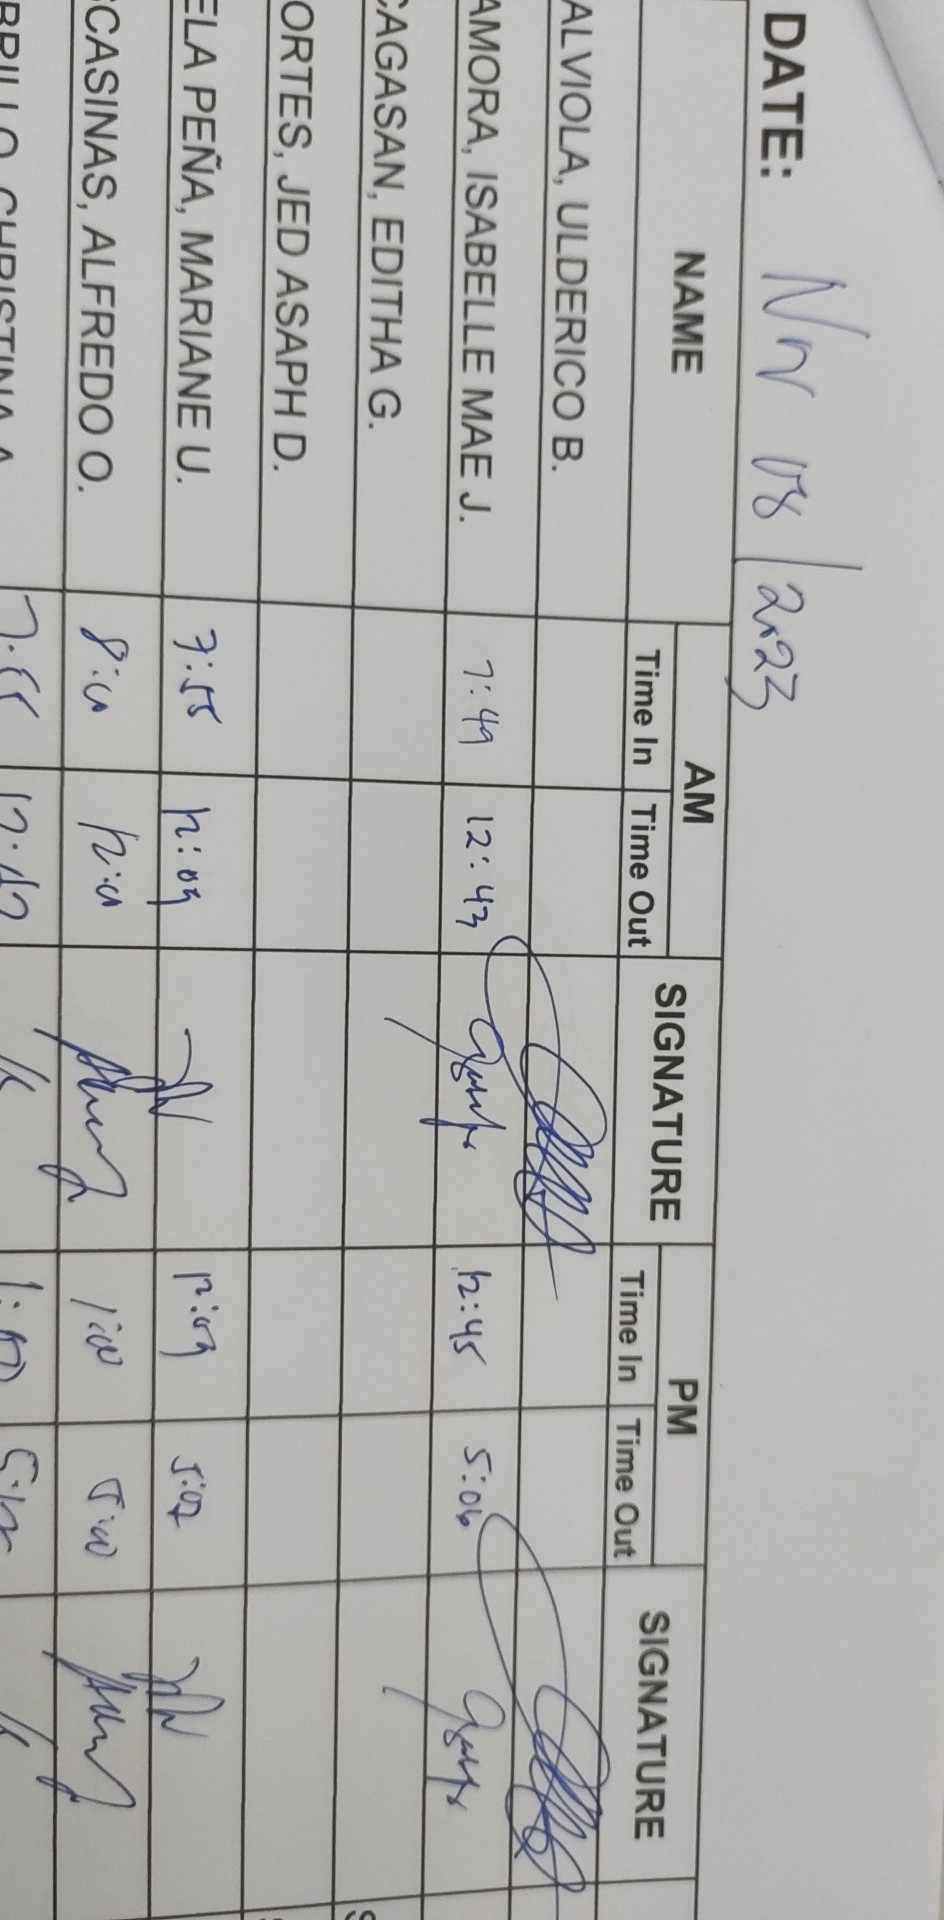 DATE: Nov 08 / 2023
NAME AM SIGNATURE PM SIGNATURE
Time In Time Out Time In Time Out
ALVIOLA, ULDERICO B.
AMORA, ISABELLE MAE J. 7:49 12:43 12:45 5:06
CAGASAN, EDITHA G.
ORTES, JED ASAPH D.
ELA PEÑA, MARIANE U. 7:55 12:09 12:09 5:07
CASINAS, ALFREDO O. 8:00 12:00 1:00 5:00
CHRISTINA A 1:00